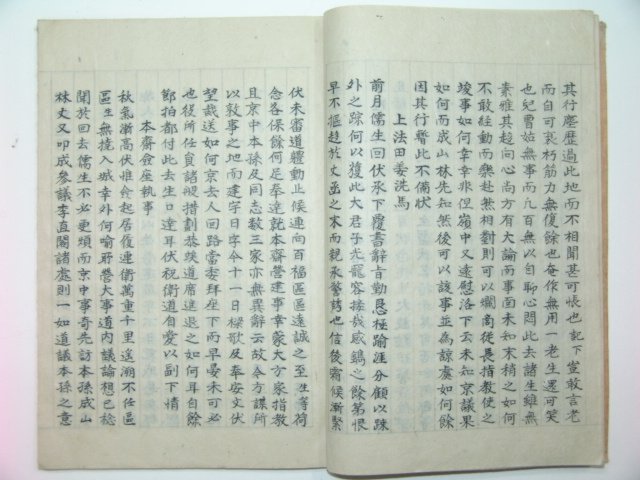 其行歷歷過此地而不相聞甚可悵也記下室教言老
而自可衰朽筋力無復餘也奄作無用一老生還可笑
也兒曹姑無事而凡百無以自聊心悶此去諸生雖無
素雅其趨向心尚方有大論而事面未知末梢之如何
不敢經動而樂赴然相對則可以爛商從長指教使之
竣事如何幸幸非但嶺中又遠慰洛下去未知京議果
如何而咸山林先知然後可以議事並爲諒處如何餘
因其行暫此不備狀
上法田姜洗馬
前月儒生回伏承下覆書辭旨勤恳極踰涯分顧以踈
外之踪何以獲此大君子光寵客接威感鎬之餘第恨
早不摳趍於丈函之末而親承警誨也信後霜候漸緊
伏未審道體動止候連向百福區區遠誠之至生等荷
念各保餘何足奉達就本齋營建事幸蒙大方家指教
且京中本孫及同志數三家亦無異辭云故令方謀所
以敦事之地而建字日字今十一日樑歌及奉安文伏
望裁送如何京去人回路當委拜座下而早晏未可必
也役所任負諸般措劃恭竢道席進退之如何耳自餘
鄭拍都付此去生口達耳伏祝衛道自愛以副下情
本齋僉座執事
秋氣漸高伏惟僉起居履連衛萬重千里遙溯不任區
區生無撓入城幸外何喻耶營大事道內議論想已稔
聞於回去儒生不必更煩而京中事奇先訪本孫咸山
林丈又叩成參議李直閣諸處則一如道議本孫之意